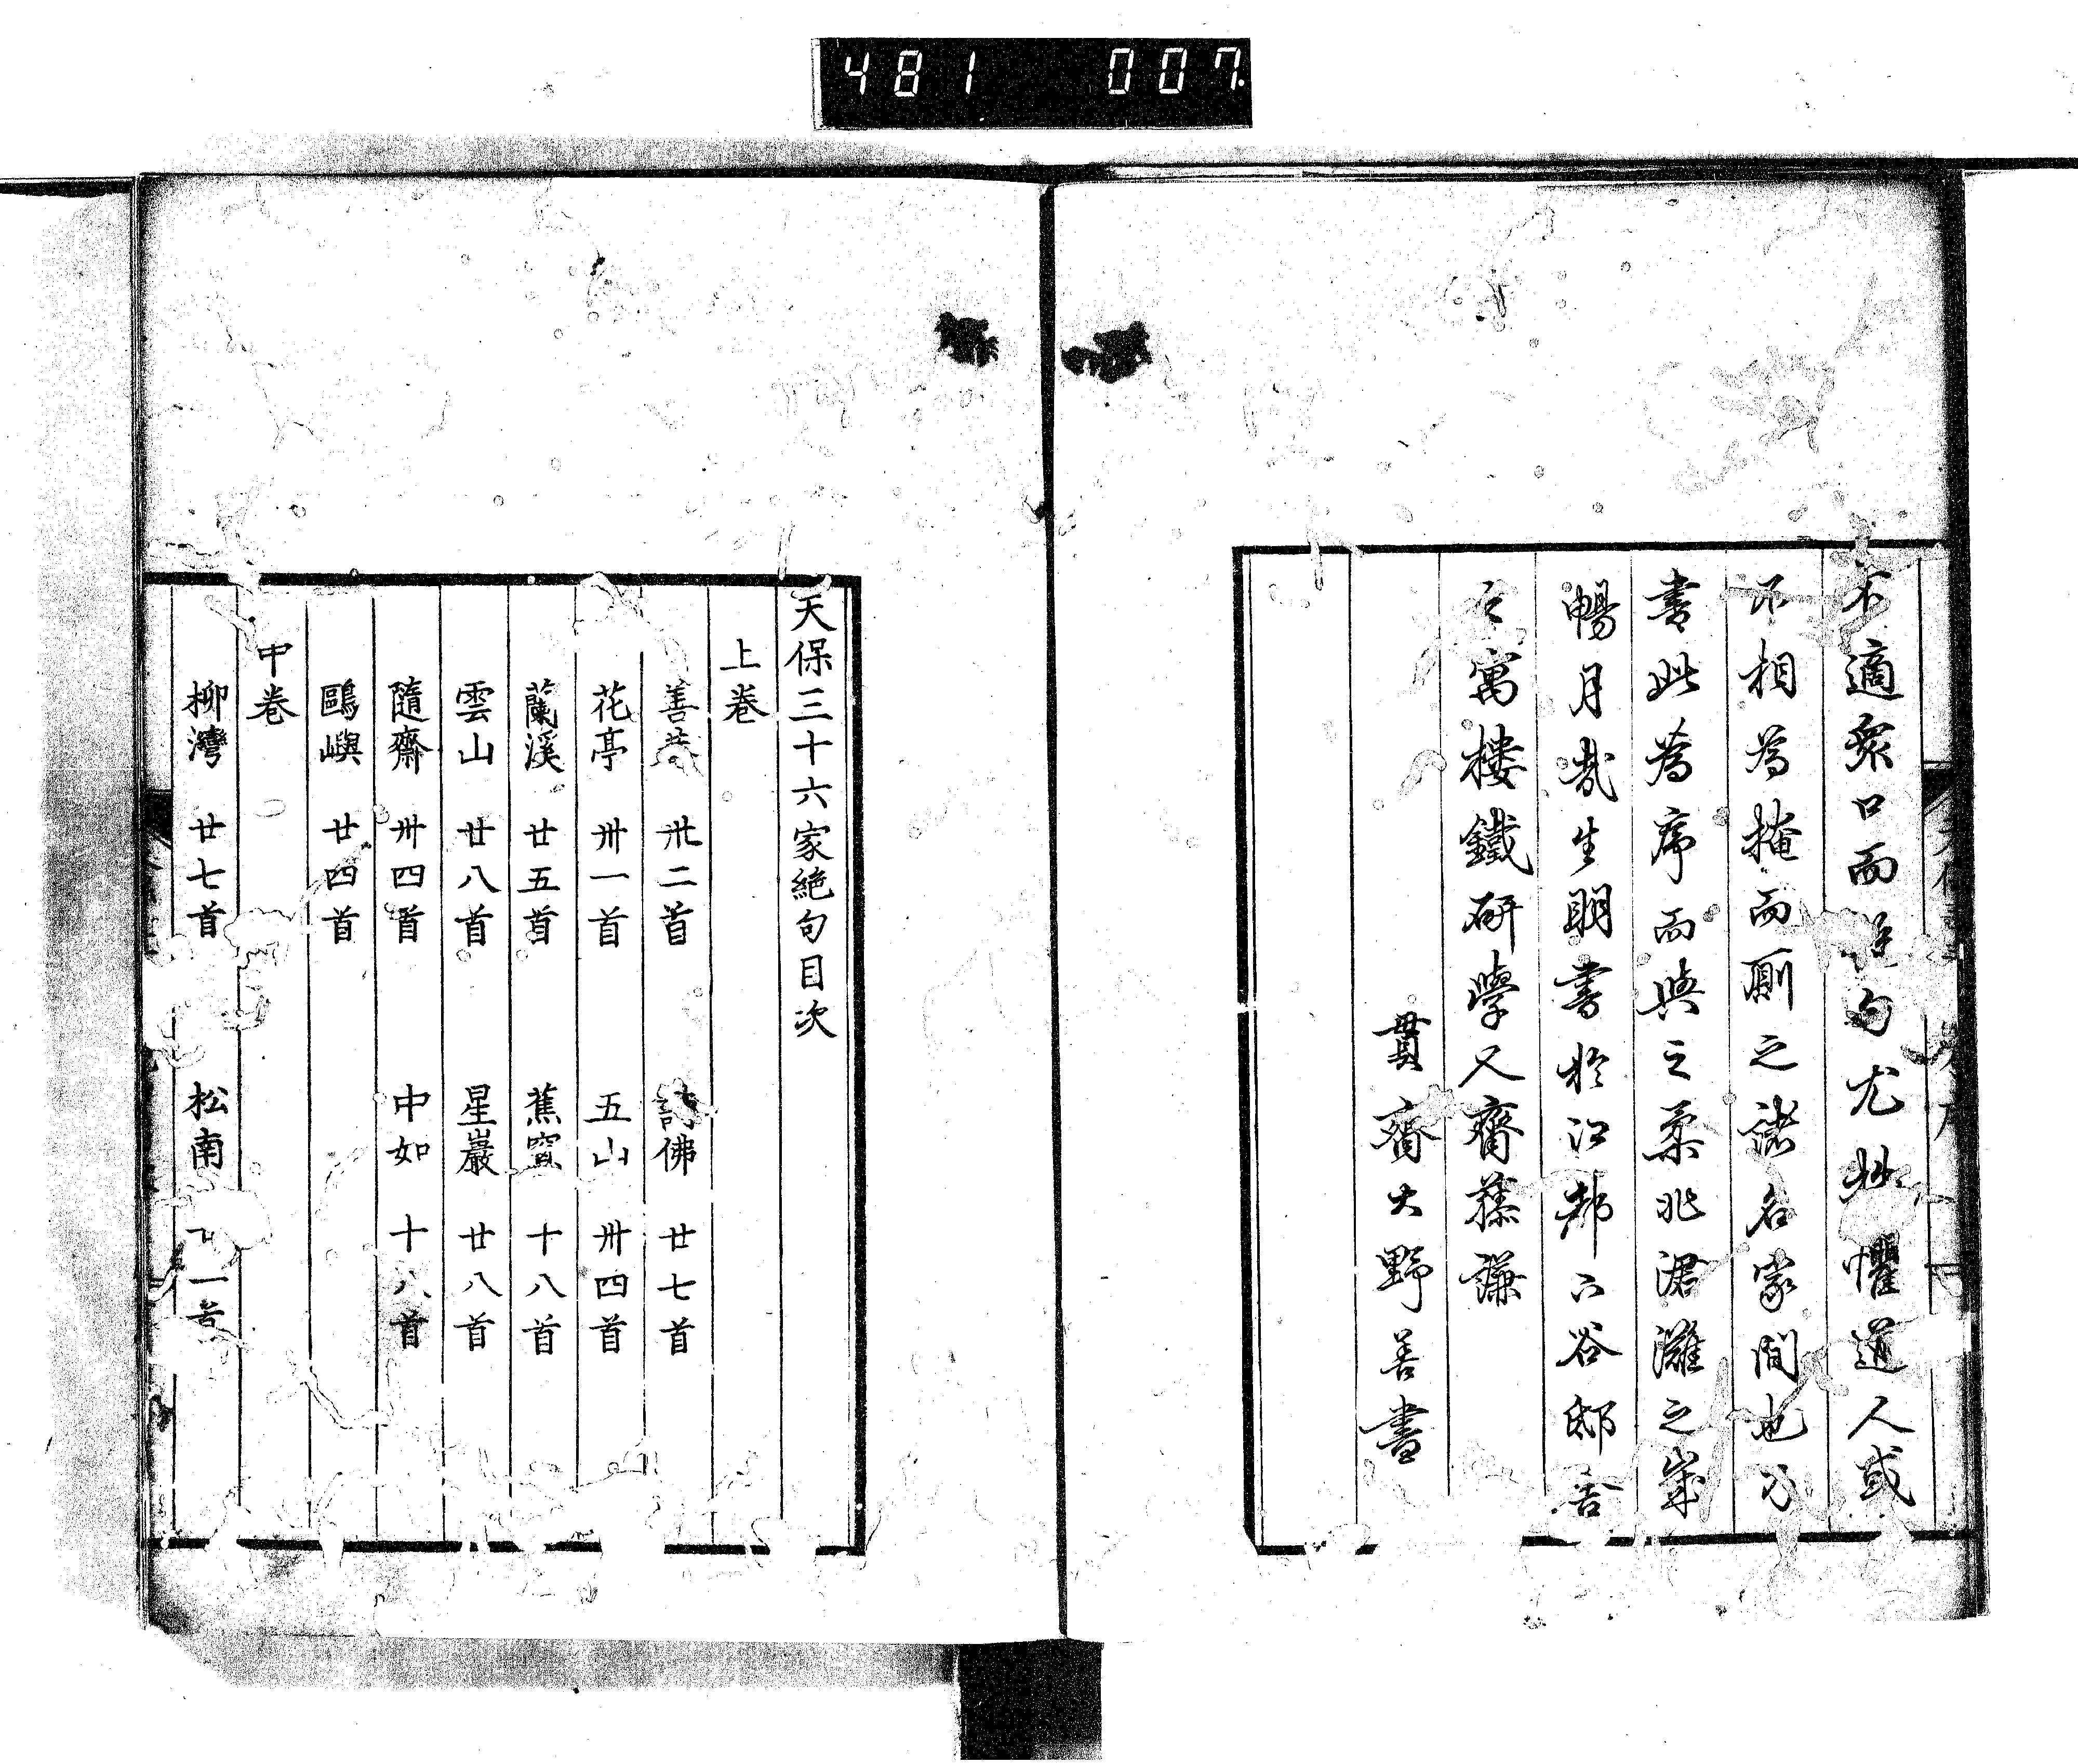 481 007
不適衆口而絶句尤妙懼道人或
不相為掩而厠之諸名家間也乃
書此為序而與之柔兆涒灘之歳
暢月哉生明書於江都六谷邸舎
之寓樓鐵研學人齋藤謙
貫齋大野善書
天保三十六家絶句目次
上卷
善菴 卅二首 詩佛 廿七首
花亭 卅一首 五山 卅四首
蘭溪 廿五首 蕉窗 十八首
雲山 廿八首 星巖 廿八首
隨齋 卅四首 中如 十八首
鷗嶼 廿四首
中卷
柳灣 廿七首 松南 一首